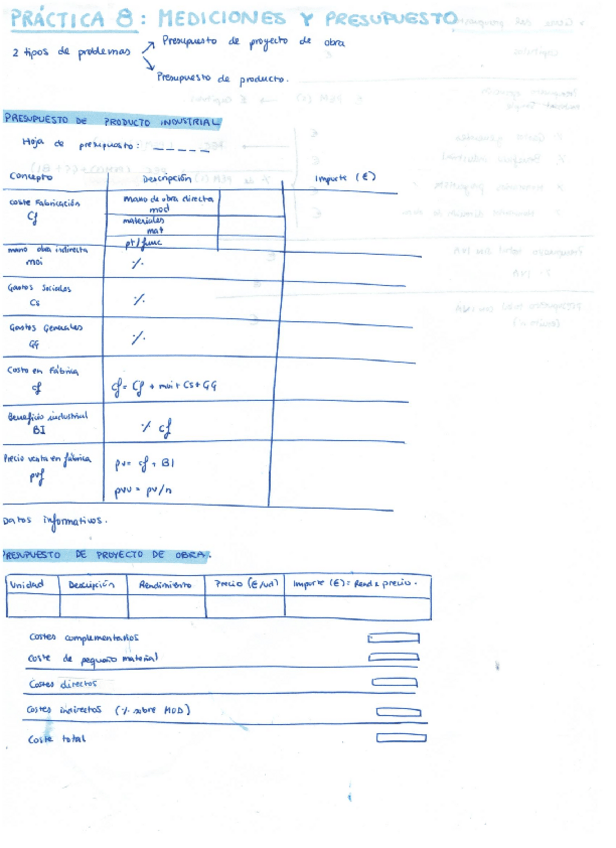 PRÁCTICA 8: MEDICIONES Y PRESUPUESTO
2 tipos de problemas
Presupuesto de proyecto de obra
Presupuesto de producto.
PRESUPUESTO DE PRODUCTO INDUSTRIAL
Hoja de presupuesto: _ _ _ _ _
Concepto Descripción Importe (€)
Coste Fabricación
Cf
mano de obra directa
mod
materiales
mat
pt/func
mano obra indirecta
moi
%
Gastos Sociales
Cs
%
Gastos Generales
GG
%
Costo en Fábrica
cf
cf = Cf + moi + Cs + GG
Beneficio industrial
BI
% cf
Precio venta en fábrica
pvf
pv = cf + BI
pvu = pv/n
Datos informativos.
PRESUPUESTO DE PROYECTO DE OBRA.
Unidad Descripción Rendimiento Precio (€/ud) Importe (€) = Rend x precio.
Costes complementarios
Coste de pequeño material
Costes directos
Costes indirectos (% sobre MOD)
Coste total